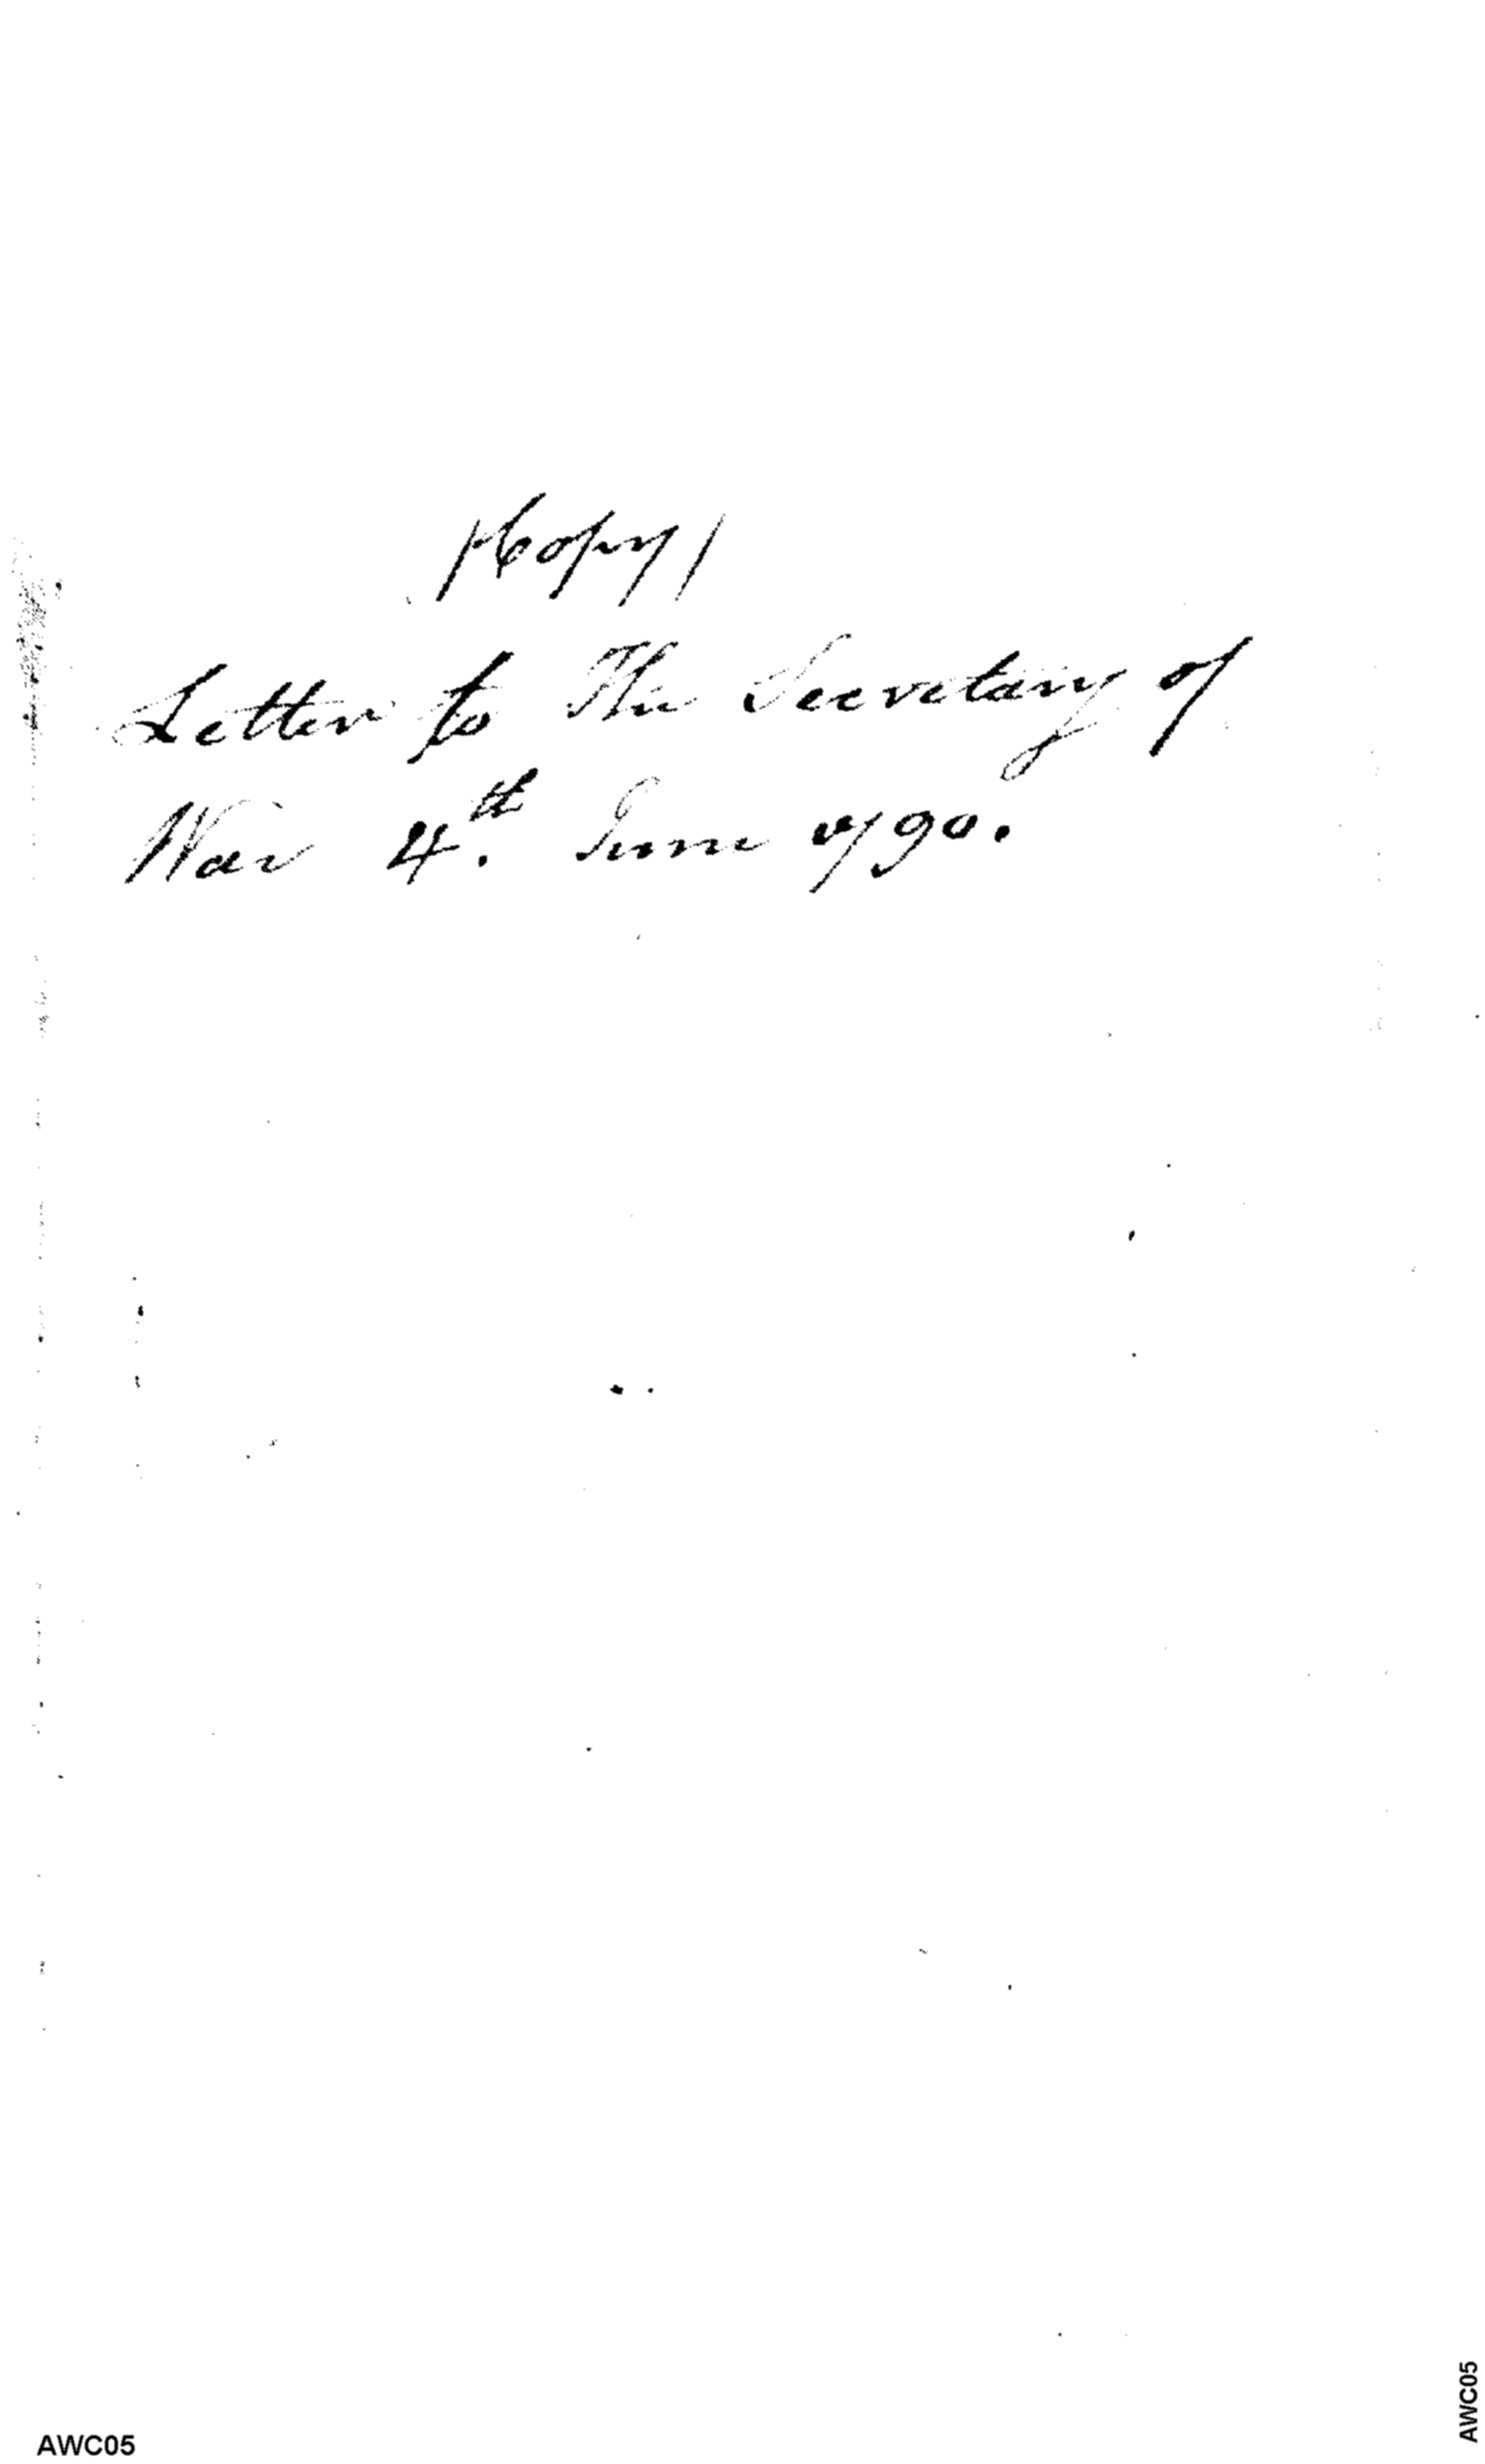 /Copy/
Letter to The Secretary of
War 4.th June 1790.
AWC05
AWC05